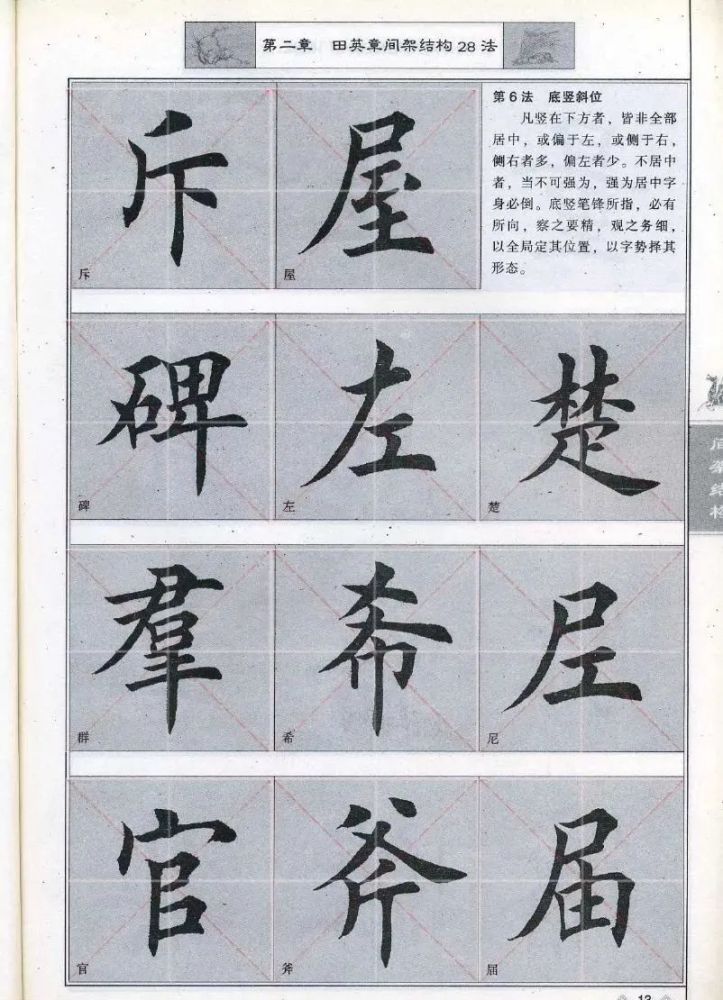 第二章 田英章间架结构28法
第6法 底竖斜位
凡竖在下方者，皆非全部
居中，或偏于左，或侧于右，
侧右者多，偏左者少。不居中
者，当不可强为，强为居中字
身必倒。底竖笔锋所指，必有
所向，察之要精，观之务细，
以全局定其位置，以字势择其
形态。
斥 屋
斥 屋
碑 左 楚
碑 左 楚
羣 希 𡰱
群 希 尼
官 斧 届
官 斧 届
间架结构
13